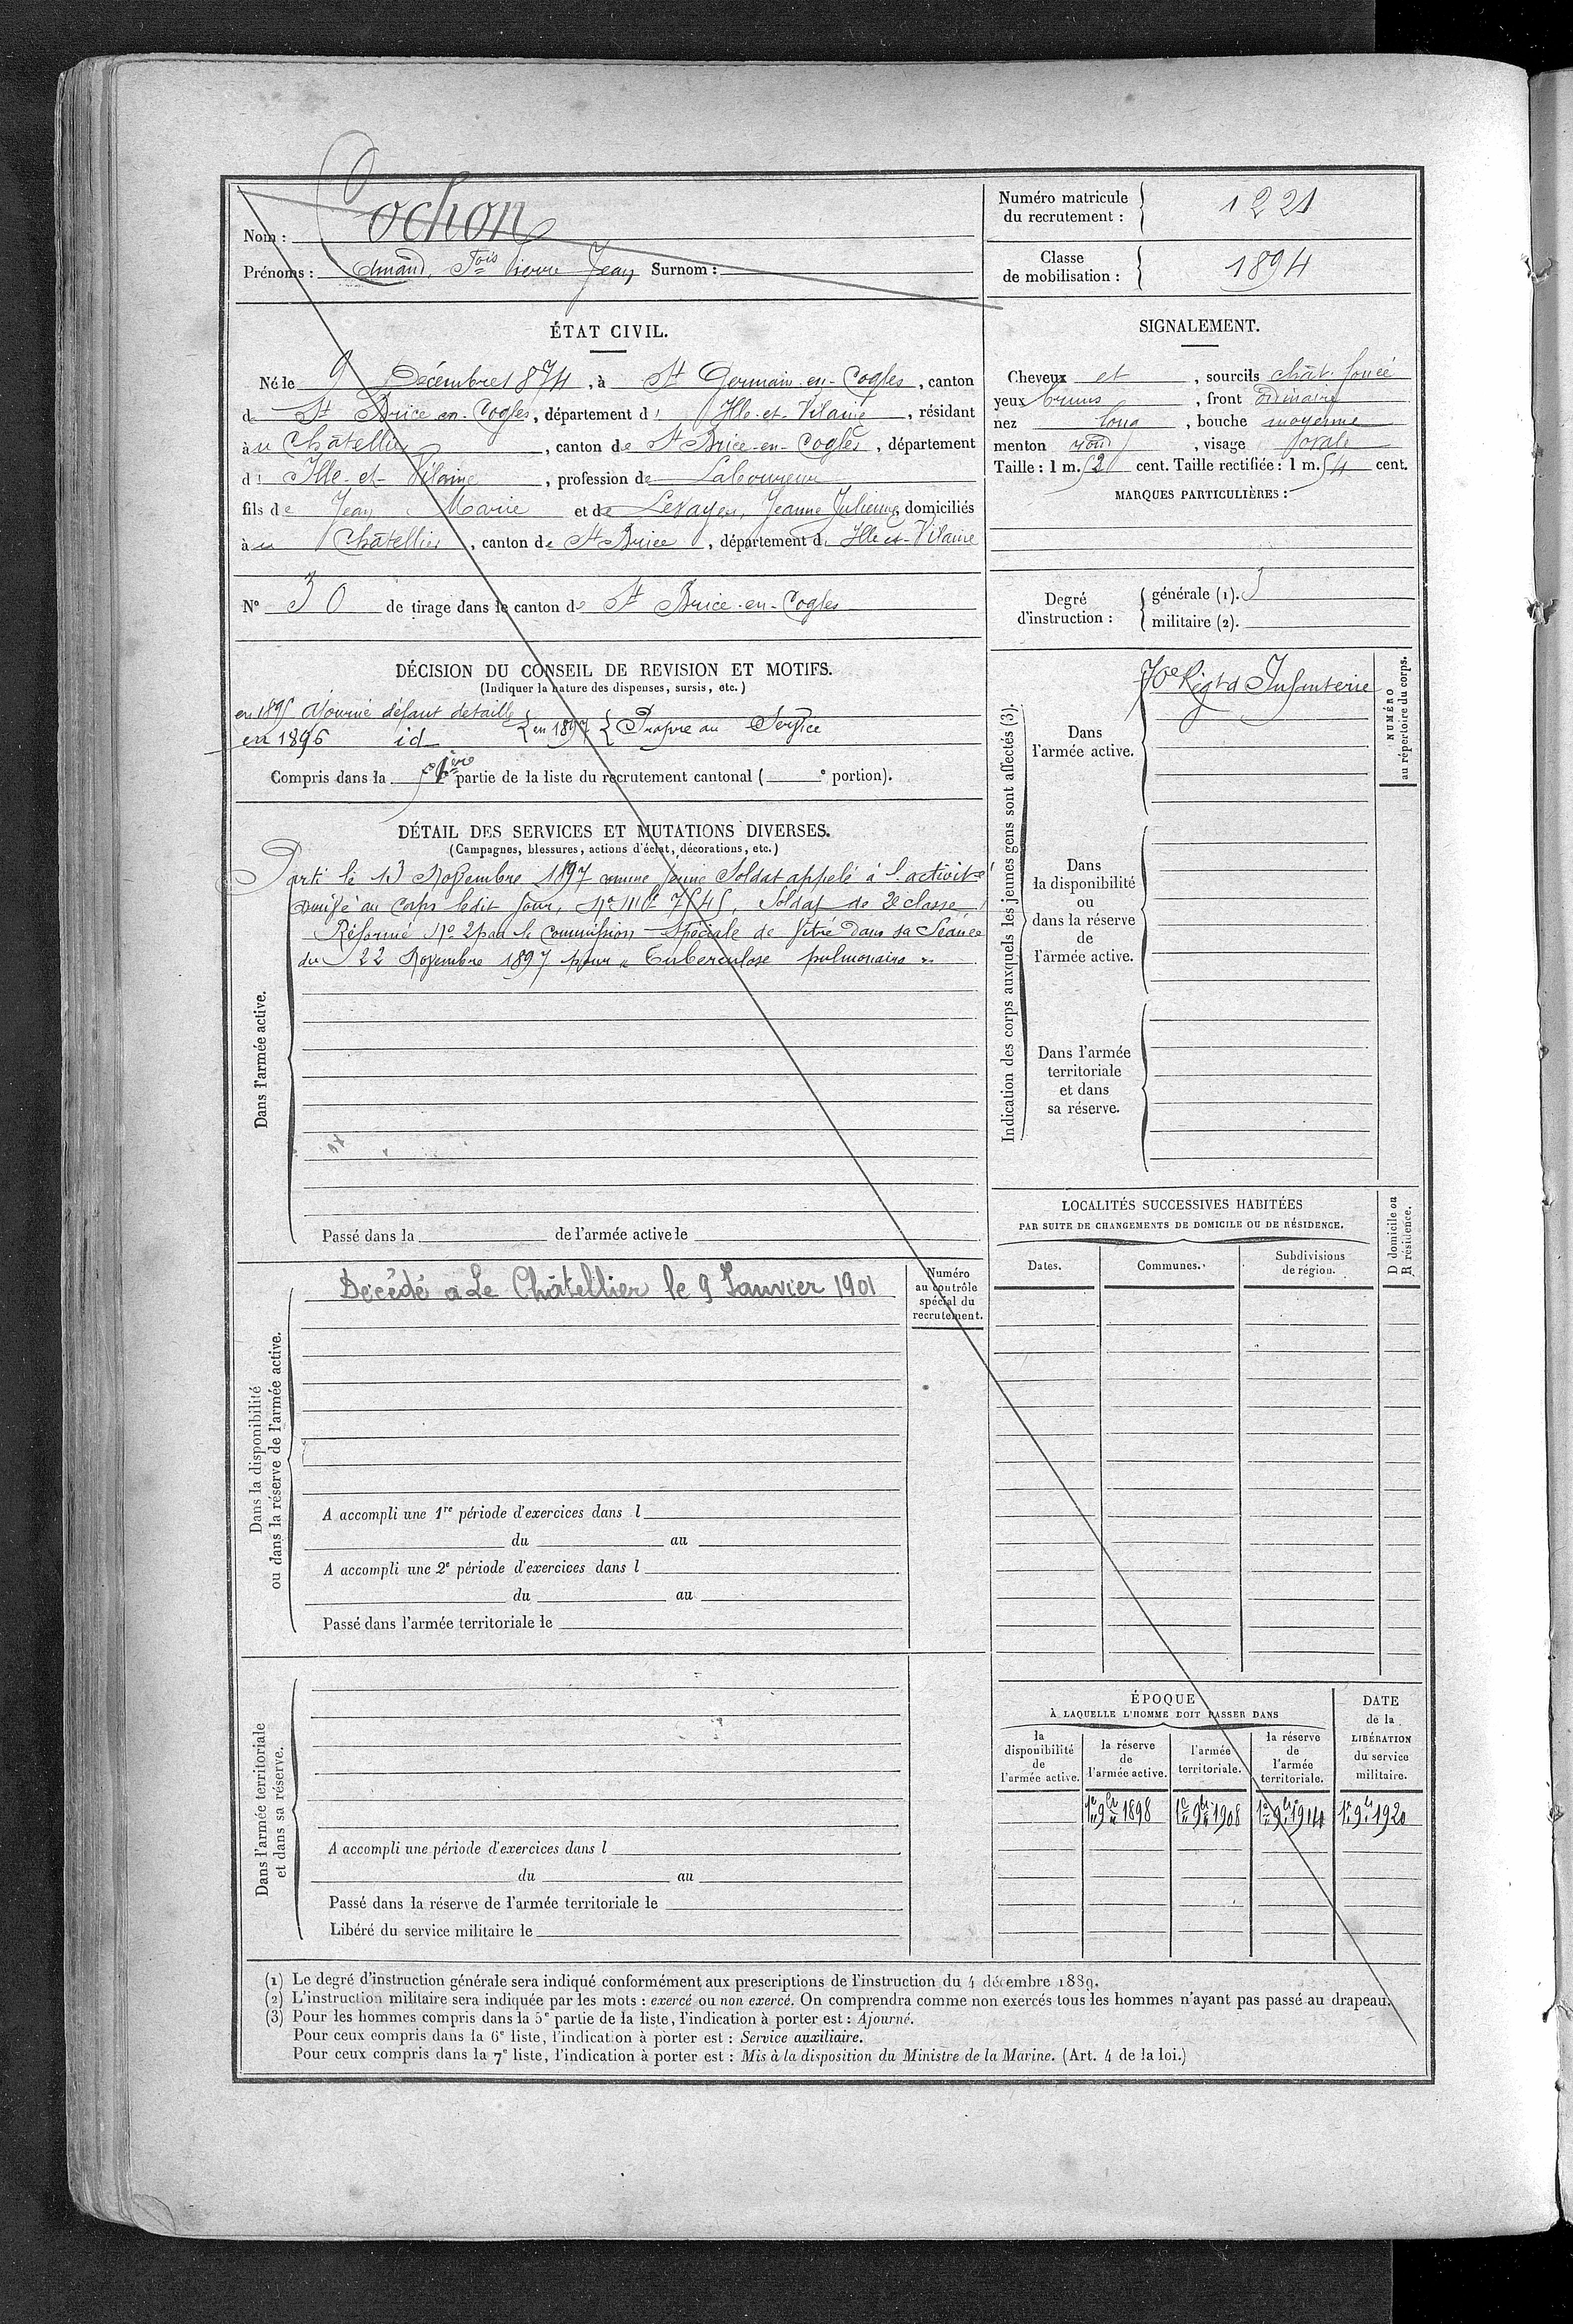 Nom : Cochon
Prénoms : Amand, Fois Pierre Jean Surnom :
Numéro matricule du recrutement : 1221
Classe de mobilisation : 1894
ÉTAT CIVIL.
Né le 9 Décembre 1874, à St Germain-en-Cogles, canton
de St Brice en-Cogles, département d'Ille-et-Vilaine, résidant
au Châtellier, canton de St Brice-en-Cogles, département
d'Ille-et-Vilaine, profession de Laboureur
fils de Jean Marie et de Levayer, Jeanne Julienne domiciliés
à u Châtellier, canton de St Brice, département d'Ille et-Vilaine
N° 30 de tirage dans le canton de St Brice-en-Cogles
SIGNALEMENT.
Cheveux et, sourcils chât. foncé
yeux bruns, front ordinaire
nez long, bouche moyenne
menton rond, visage ovale
Taille : 1 m. 52 cent. Taille rectifiée : 1 m. 54 cent.
MARQUES PARTICULIÈRES :
Degré d'instruction :
générale (1). 3
militaire (2).
DÉCISION DU CONSEIL DE REVISION ET MOTIFS.
(Indiquer la nature des dispenses, sursis, etc.)
en 1895 Ajourné défaut de taille
en 1896 id { en 1897 { Propre au Service
Compris dans la 1ère partie de la liste du recrutement cantonal ( e portion).
DÉTAIL DES SERVICES ET MUTATIONS DIVERSES.
(Campagnes, blessures, actions d'éclat, décorations, etc.)
Dans l'armée active.
Parti le 13 Novembre 1897 comme jeune Soldat appelé à l'activité
arrivé au Corps ledit jour, No Mle 7545, Soldat de 2e classe
Réformé No 2 par la Commission Spéciale de Vitré dans sa Séance
du 22 Novembre 1897 pour « Tuberculose pulmonaire »
Passé dans la de l'armée active le
Indication des corps auxquels les jeunes gens sont affectés (3).
Dans l'armée active.
70e Rigt d'Infanterie
NUMÉRO au répertoire du corps.
Dans la disponibilité ou dans la réserve de l'armée active.
Dans l'armée territoriale et dans sa réserve.
LOCALITÉS SUCCESSIVES HABITÉES
PAR SUITE DE CHANGEMENTS DE DOMICILE OU DE RÉSIDENCE.
Dates. Communes. Subdivisions de région. D domicile ou R résidence.
Dans la disponibilité ou dans la réserve de l'armée active.
Décédé a Le Châtellier le 9 Janvier 1901
Numéro au contrôle spécial du recrutement.
A accompli une 1re période d'exercices dans l
du au
A accompli une 2e période d'exercices dans l
du au
Passé dans l'armée territoriale le
Dans l'armée territoriale et dans sa réserve.
A accompli une période d'exercices dans l
du au
Passé dans la réserve de l'armée territoriale le
Libéré du service militaire le
ÉPOQUE
À LAQUELLE L'HOMME DOIT PASSER DANS
la disponibilité de l'armée active.
la réserve de l'armée active.
l'armée territoriale.
la réserve de l'armée territoriale.
DATE de la LIBÉRATION du service militaire.
1er 9bre 1898 1er 9bre 1908 1er 9bre 1914 1er 9bre 1920
(1) Le degré d'instruction générale sera indiqué conformément aux prescriptions de l'instruction du 4 décembre 1889.
(2) L'instruction militaire sera indiquée par les mots : exercé ou non exercé. On comprendra comme non exercés tous les hommes n'ayant pas passé au drapeau.
(3) Pour les hommes compris dans la 5e partie de la liste, l'indication à porter est : Ajourné.
Pour ceux compris dans la 6e liste, l'indication à porter est : Service auxiliaire.
Pour ceux compris dans la 7e liste, l'indication à porter est : Mis à la disposition du Ministre de la Marine. (Art. 4 de la loi.)